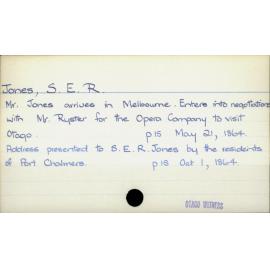 Jones, S. E. R.
Mr. Jones arrives in Melbourne. Enters into negotiations
with Mr. Ryster for the Opera Company to visit
Otago. p15 May 21, 1864.
Address presented to S. E. R. Jones by the residents
of Port Chalmers. p18 Oct 1, 1864.
OTAGO WITNESS